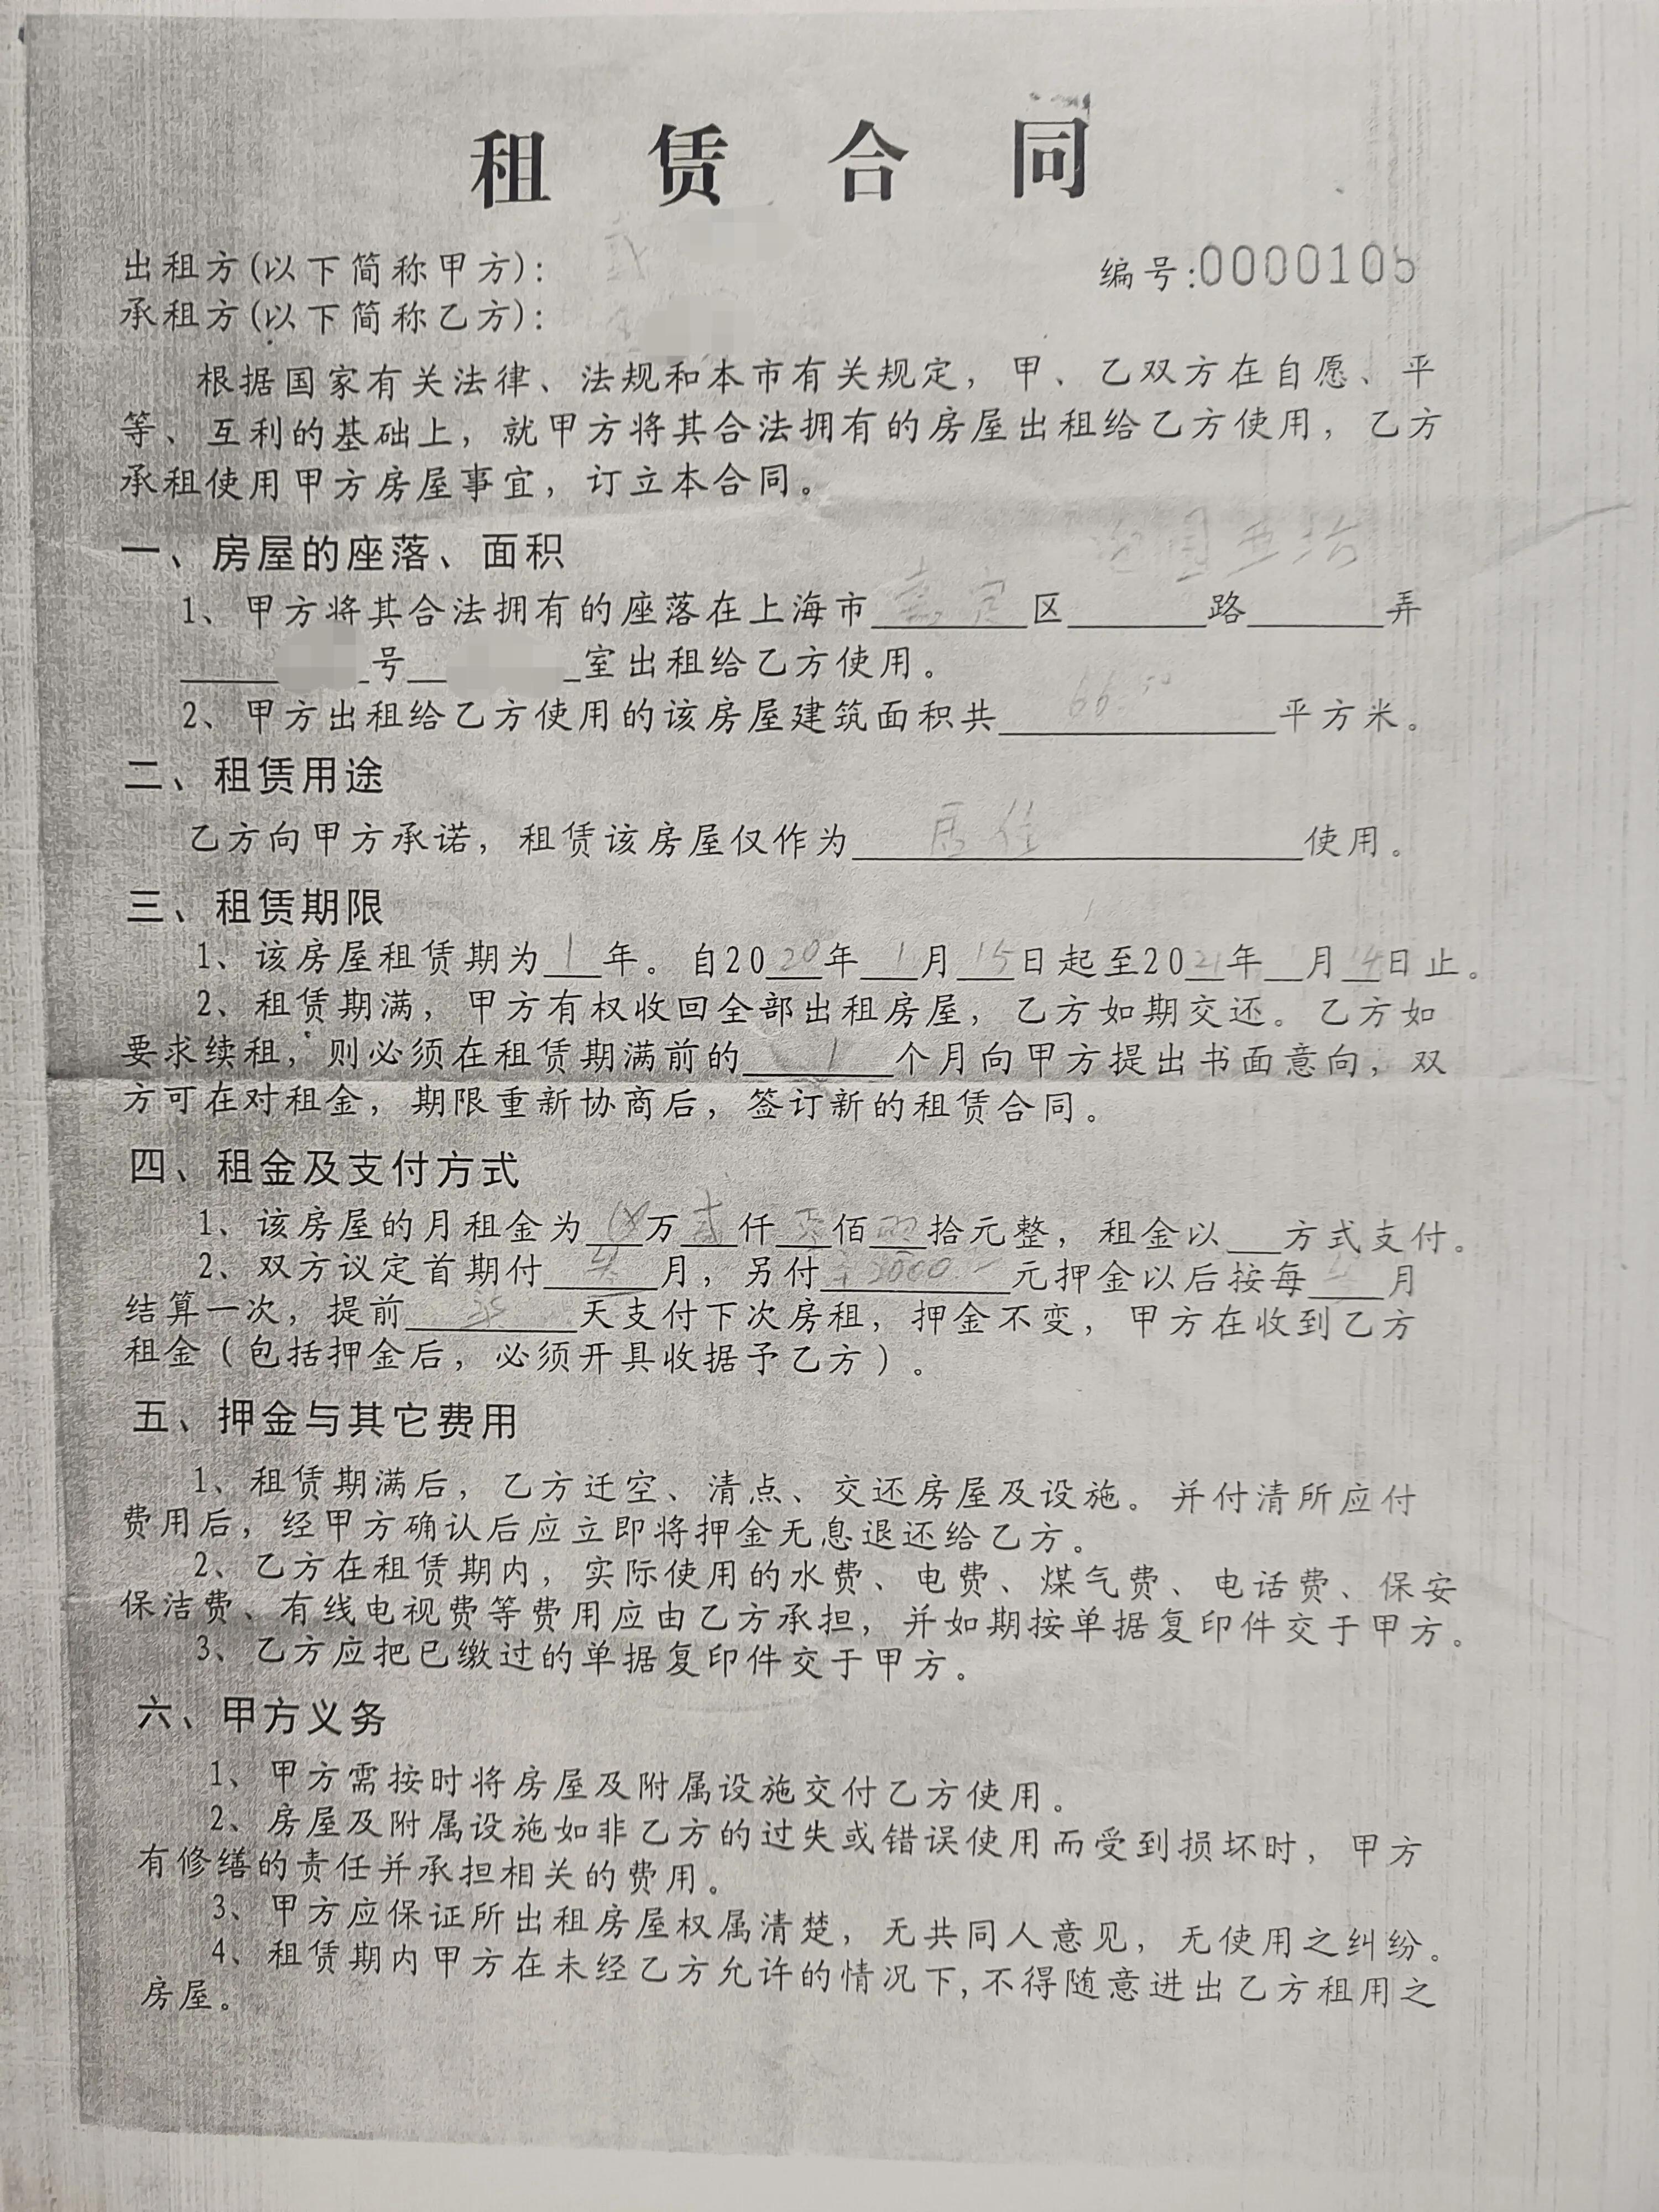 租赁合同
出租方(以下简称甲方):
编号:0000105
承租方(以下简称乙方):
根据国家有关法律、法规和本市有关规定，甲、乙双方在自愿、平
等、互利的基础上，就甲方将其合法拥有的房屋出租给乙方使用，乙方
承租使用甲方房屋事宜，订立本合同。
一、房屋的座落、面积
1、甲方将其合法拥有的座落在上海市嘉定区____路____弄
____号____室出租给乙方使用。
2、甲方出租给乙方使用的该房屋建筑面积共66.50平方米。
二、租赁用途
乙方向甲方承诺，租赁该房屋仅作为居住使用。
三、租赁期限
1、该房屋租赁期为1年。自2020年1月15日起至2021年1月14日止。
2、租赁期满，甲方有权收回全部出租房屋，乙方如期交还。乙方如
要求续租，则必须在租赁期满前的1个月向甲方提出书面意向，双
方可在对租金，期限重新协商后，签订新的租赁合同。
四、租金及支付方式
1、该房屋的月租金为__万贰仟零佰__拾元整，租金以__方式支付。
2、双方议定首期付__月，另付2000元押金以后按每__月
结算一次，提前__天支付下次房租，押金不变，甲方在收到乙方
租金（包括押金后，必须开具收据予乙方）。
五、押金与其它费用
1、租赁期满后，乙方迁空、清点、交还房屋及设施。并付清所应付
费用后，经甲方确认后应立即将押金无息退还给乙方。
2、乙方在租赁期内，实际使用的水费、电费、煤气费、电话费、保安
保洁费、有线电视费等费用应由乙方承担，并如期按单据复印件交于甲方。
3、乙方应把已缴过的单据复印件交于甲方。
六、甲方义务
1、甲方需按时将房屋及附属设施交付乙方使用。
2、房屋及附属设施如非乙方的过失或错误使用而受到损坏时，甲方
有修缮的责任并承担相关的费用。
3、甲方应保证所出租房屋权属清楚，无共同人意见，无使用之纠纷。
4、租赁期内甲方在未经乙方允许的情况下,不得随意进出乙方租用之
房屋。